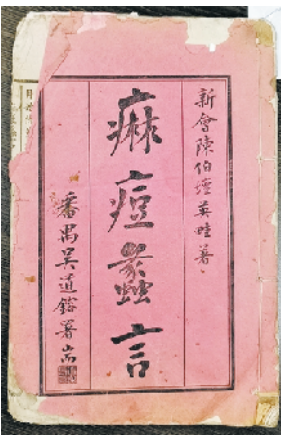 新會陳伯壇英畦著
痲痘蠡言
番禺吳道鎔署耑